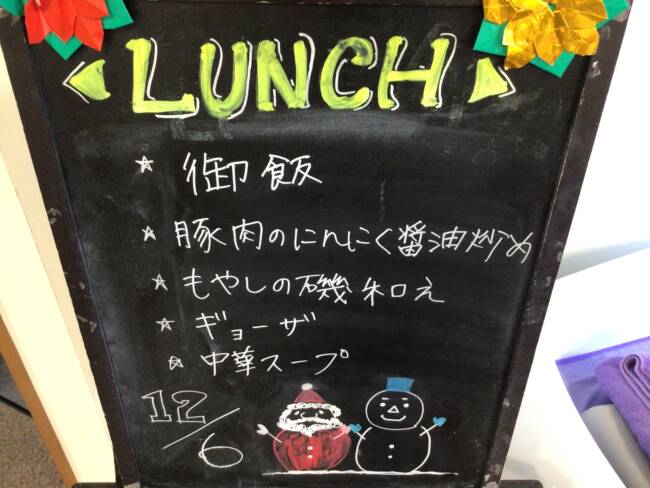 LUNCH
☆ 御飯
☆ 豚肉のにんにく醤油炒め
☆ もやしの磯和え
☆ ギョーザ
☆ 中華スープ
12/6